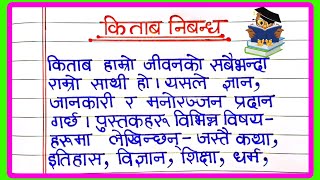 किताब निबन्ध
किताब हाम्रो जीवनको सबैभन्दा
राम्रो साथी हो। यसले ज्ञान,
जानकारी र मनोरञ्जन प्रदान
गर्छ। पुस्तकहरू विभिन्न विषय-
हरूमा लेखिन्छन्- जस्तै कथा,
इतिहास, विज्ञान, शिक्षा, धर्म,